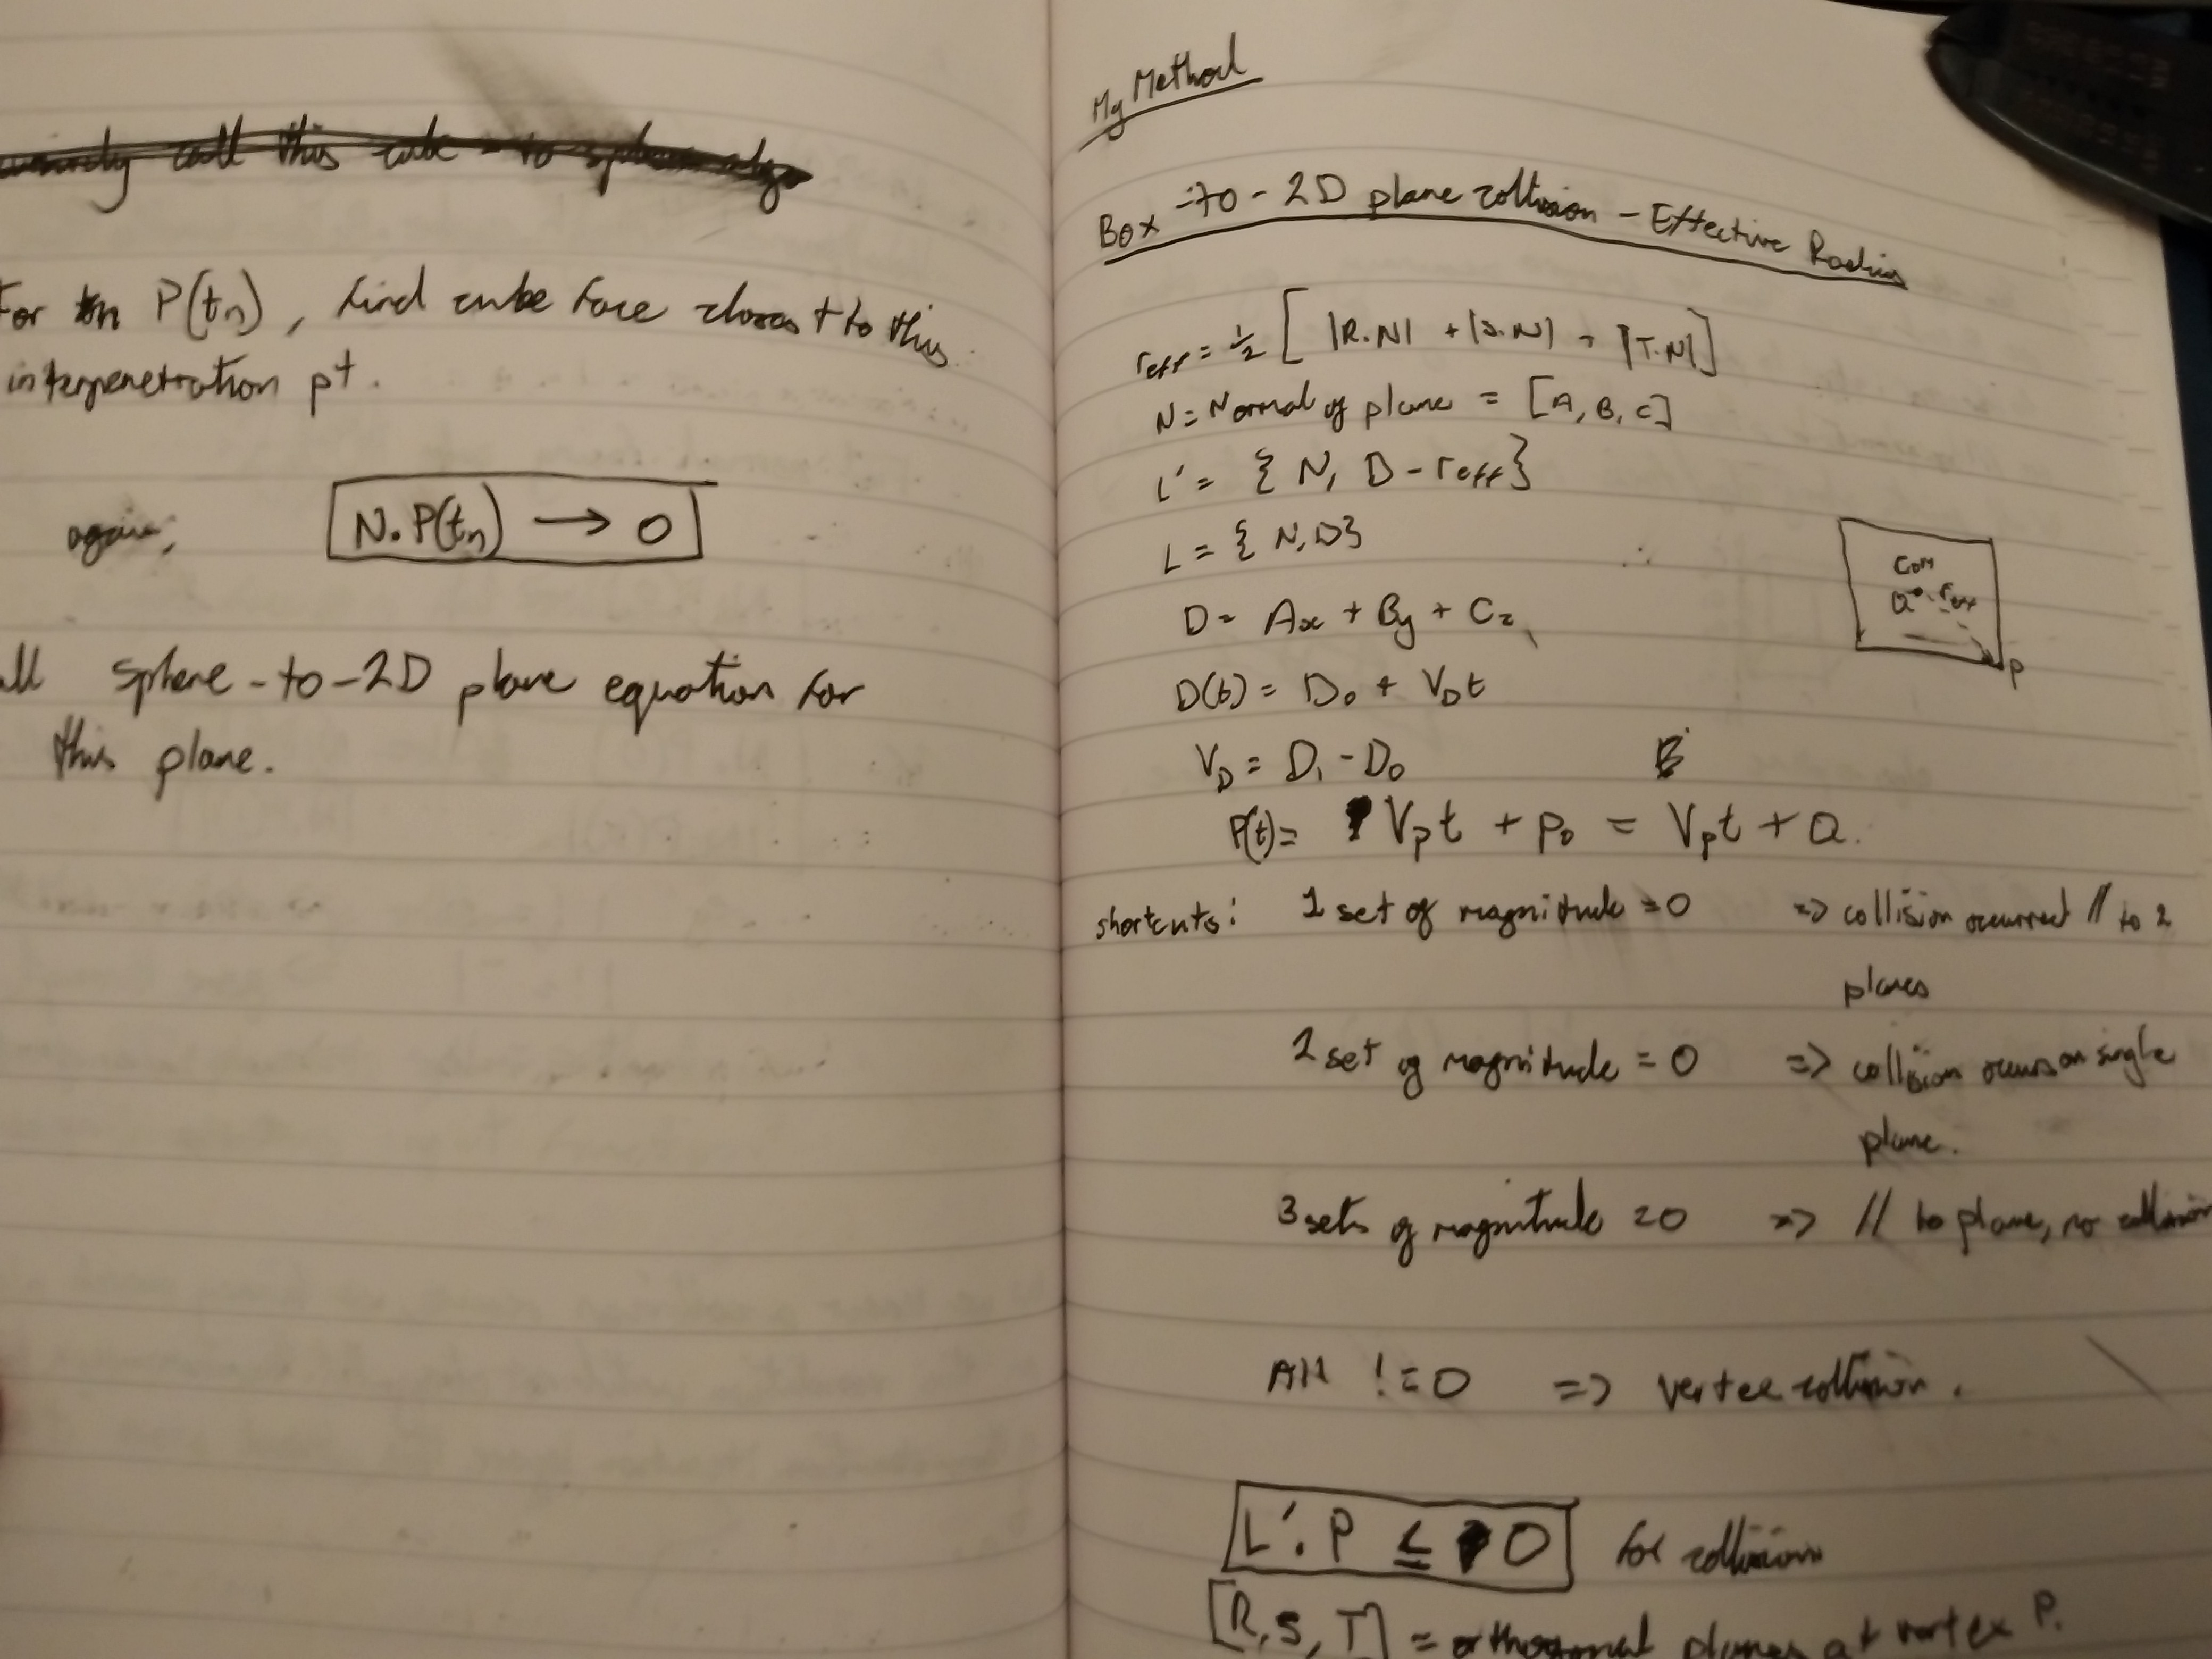 call this cube - to sphere
For P(tn), find cube face closest to this
interpenetration pt.
again, N.P(tn) → 0
Sphere-to-2D plane equation for
this plane.
My Method
Box-to-2D plane collision - Effective Radius
reff = 1/2 [ |R.N| + |S.N| + |T.N| ]
N = Normal of plane = [A, B, C]
L' = { N, D - reff }
L = { N, D }
D = Ax + By + Cz
COM
Q reff
P
D(t) = D0 + VDt
VD = D1 - D0
P(t) = Vpt + P0 = Vpt + Q.
shortcuts: 1 set of magnitude = 0 => collision occurred // to 2
planes
2 set of magnitude = 0 => collision occurs on single
plane.
3 sets of magnitude = 0 => // to plane, no collision
All != 0 => vertex collision.
L'.P ≤ 0 for collision
[R, S, T] = orthogonal planes at vertex P.